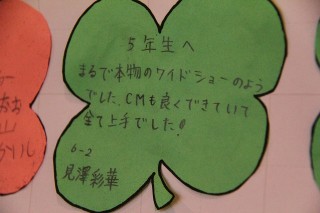 5年生へ
まるで本物のワイドショーのよう
でした。CMも良くできていて
全て上手でした!
6-2
見澤彩華